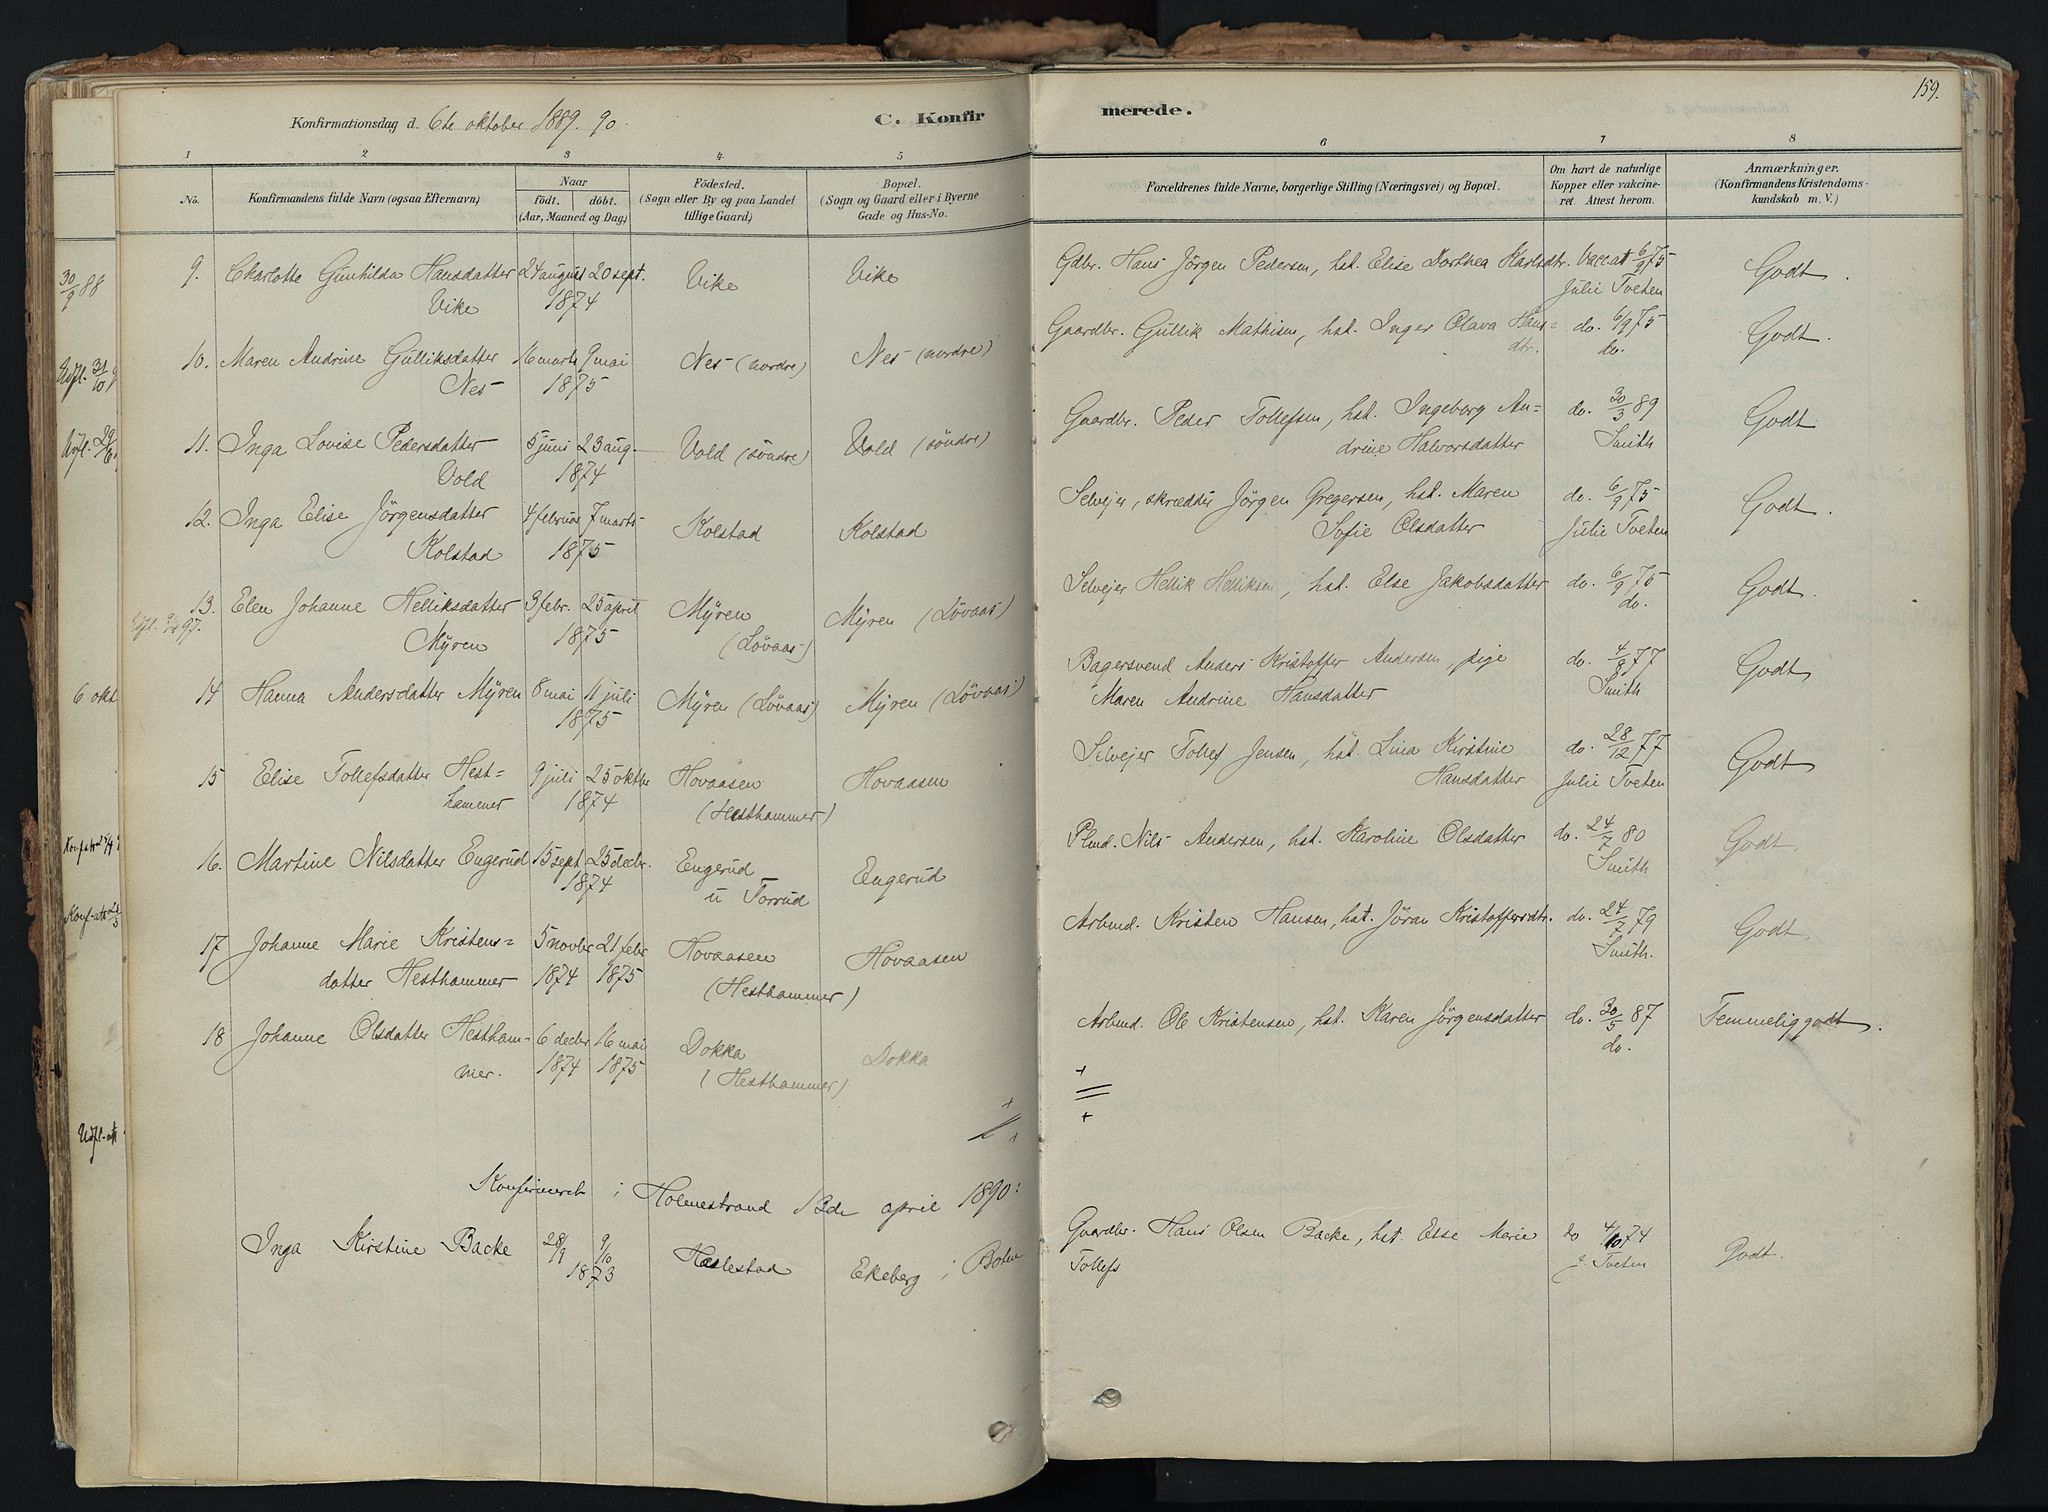 159.
Konfirmationsdag d. 6te oktober 1889. 90.
C. Konfir
merede.
1 2 3 4 5 6 7 8
No.
Konfirmandens fulde Navn (ogsaa Efternavn)
Naar
født. døbt.
(Aar, Maaned og Dag)
Fødested.
(Sogn eller By og paa Landet
tillige Gaard)
Bopæl.
(Sogn og Gaard eller i Byerne
Gade og Hus-No.
Forældrenes fulde Navne, borgerlige Stilling (Næringsvei) og Bopæl.
Om havt de naturlige
Kopper eller vakcine-
ret. Attest herom.
Anmærkninger.
(Konfirmandens Kristendoms-
kundskab m. V.)
30/9 88
9. Charlotte Gunhilda Hansdatter 24 august 20 sept. Vike Vike Gdbr. Hans Jörgen Pedersen, hst. Elise Dorthea Karlsdtr. Vacc.at 6/9 75 Godt.
Vike 1874 Julie Tveten
10. Maren Andrine Gulliksdatter 16 marts 9 mai Nes (nordre) Nes (nordre) Gaardbr. Gullik Mathisen, hst. Inger Olava Hans= do. 6/9 75 Godt.
Nes 1875 dtr. do.
11. Inga Lovise Pedersdatter 5 juni 23 aug. Vold (söndre) Vold (söndre) Gaardbr. Peder Tollefsen, hst. Ingeborg An= do. 30/3 89 Godt
Vold 1874 drine Halvorsdatter Smith
12. Inga Elise Jörgensdatter 4 februar 7 marts Kolstad Kolstad Selvejer, skrædder Jörgen Gregersen, hst. Maren do. 6/9 75 Godt.
Kolstad 1875 Sofie Olsdatter Julie Tveten
13. Elen Johanne Helliksdatter 3 febr. 25 april Myren Myren (Lövaas) Selvejer Hellik Helliksen, hst. Else Jakobsdatter do. 6/9 75 Godt.
97. Myren 1875 (Lövaas) do.
6 okt
14 Hanna Andersdatter Myren 8 mai 11 juli Myren (Lövaas) Myren (Lövaas) Bagersvend Anders Kristoffer Andersen, pige do. 4/8 77 Godt
1875 Maren Andrine Hansdatter Smith
15 Elise Tollefsdatter Hest= 9 juli 25 oktbr Hovaasen Hovaasen Selvejer Tollef Jensen, hst. Lina Kirstine do. 28/12 77 Godt
hammer 1874 (Hesthammer) Hansdatter Julie Tveten
16. Martine Nilsdatter Engerud 15 sept 25 decbr. Engerud Engerud Plmd. Nils Andersen, hst. Karoline Olsdatter do. 24/7 80 Godt.
1874 u Torrud Smith
17 Johanne Marie Kristens= 5 novbr 21 febr Hovaasen Hovaasen Arbmd. Kristen Hansen, hst. Jöran Kristoffersdtr. do. 24/7 79 Godt.
datter Hesthammer 1874 1875 (Hesthammer) Smith.
18 Johanne Olsdatter Hestham- 6 decbr 16 mai Dokka Dokka Arbmd. Ole Kristensen, hst. Karen Jörgensdatter do. 30/5 87 Temmelig godt.
mer. 1874 1875 (Hesthammer) do.
Konfirmeret i Holmestrand 13de april 1890:
Inga Kirstine Backe 28/9 9/10 Hælestad Ekeberg i Botne Gaardbr. Hans Olsen Backe, hst. Else Marie do 4/10 74 Godt.
1873 Tollefs J. Tveten